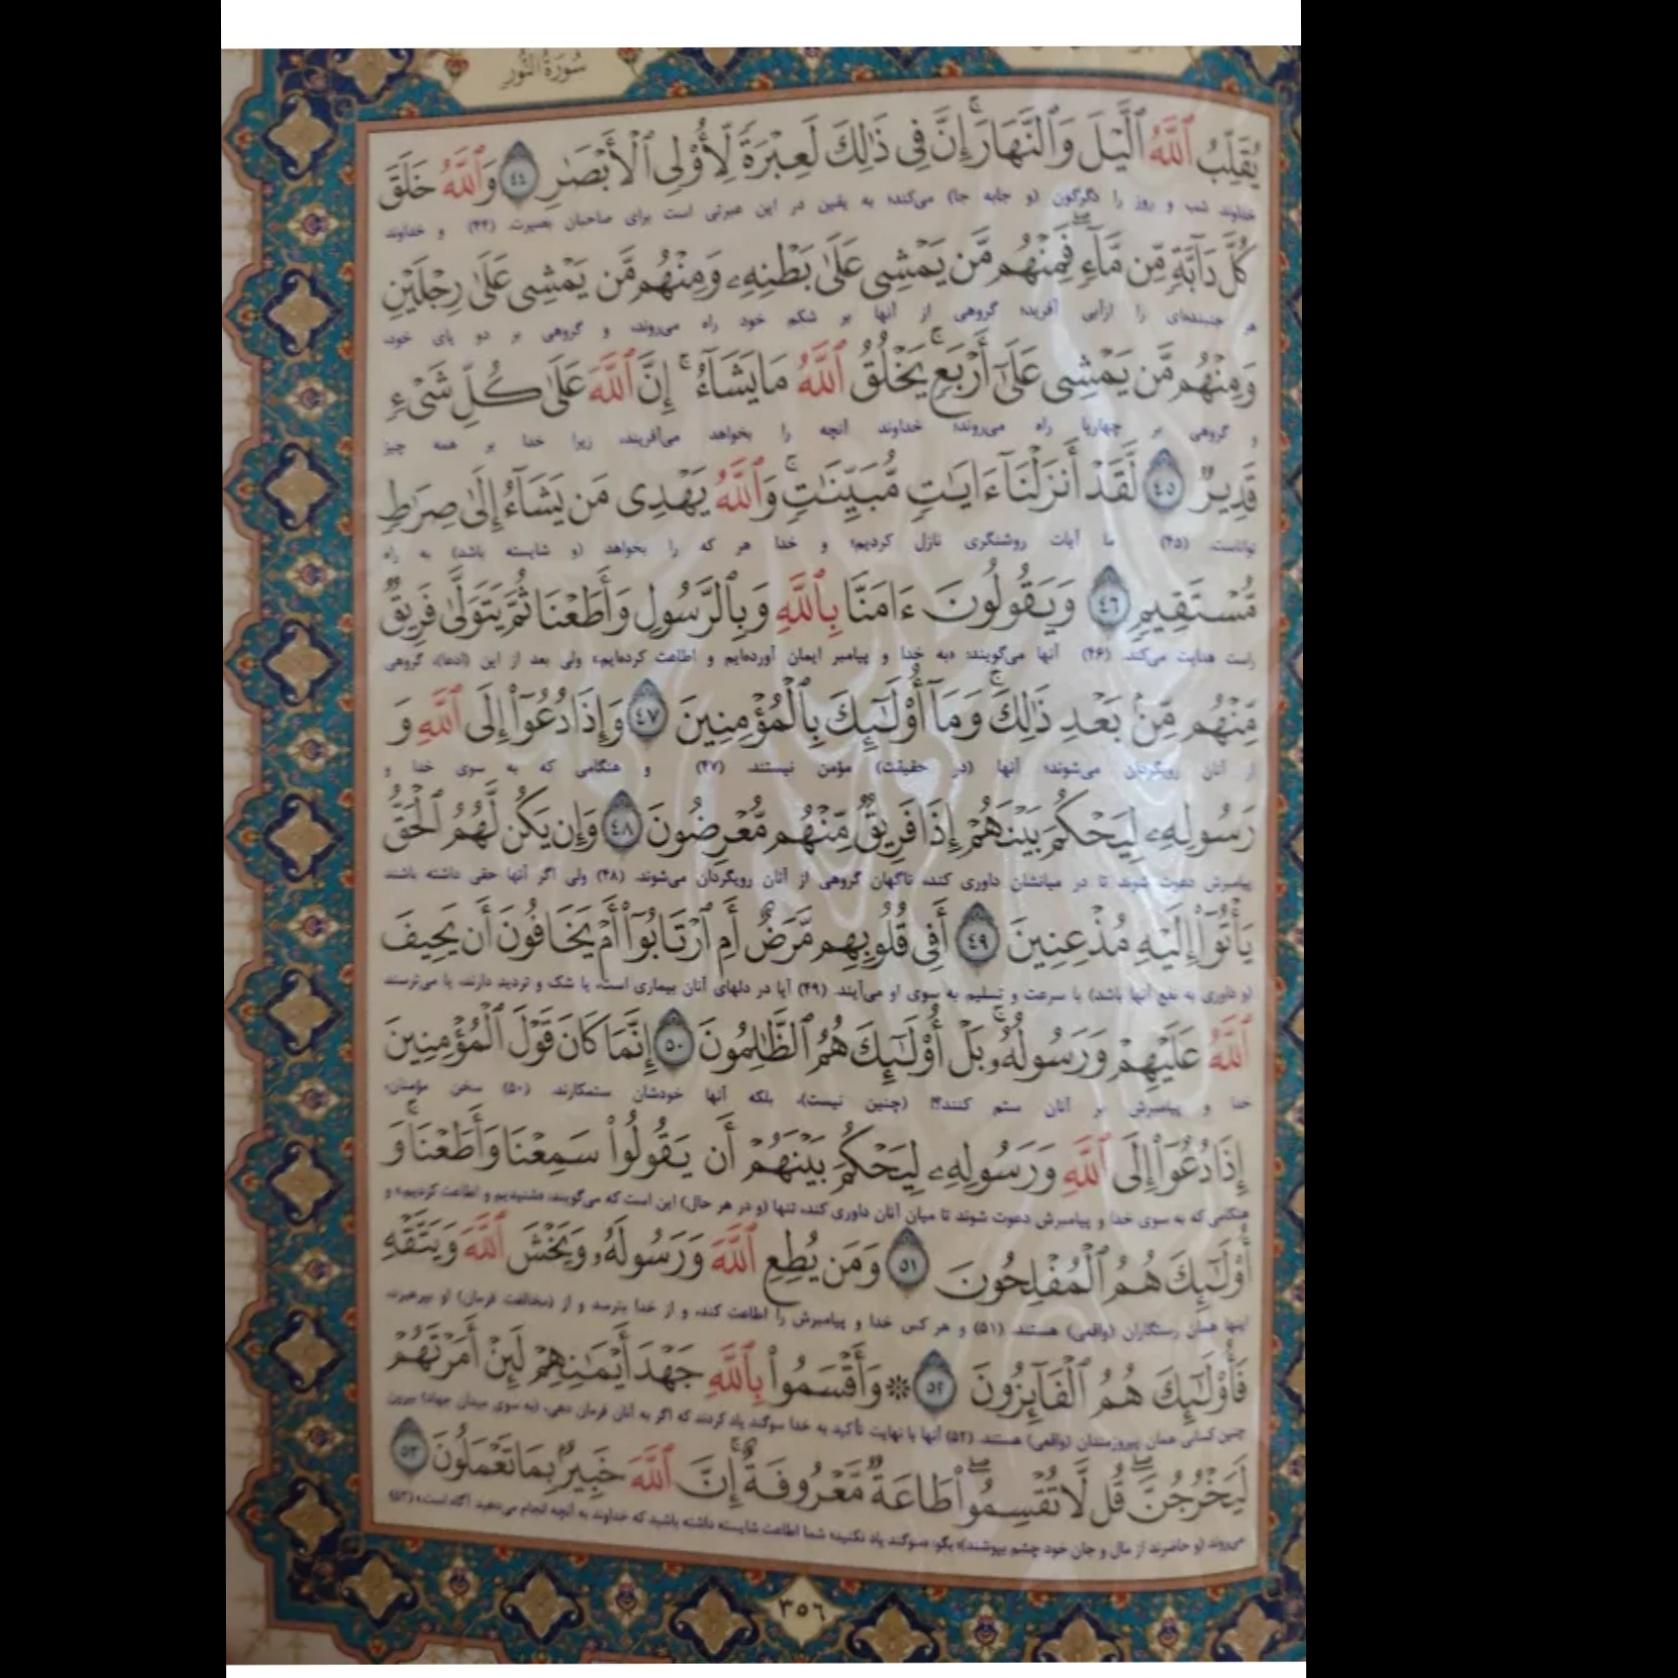 سُورَةُ النُّور
يُقَلِّبُ ٱللَّهُ ٱلَّيْلَ وَٱلنَّهَارَ ۚ إِنَّ فِى ذَٰلِكَ لَعِبْرَةً لِّأُو۟لِى ٱلْأَبْصَٰرِ ٤٤ وَٱللَّهُ خَلَقَ
خداوند شب و روز را دگرگون (و جابه جا) می‌کند؛ به یقین در این عبرتی است برای صاحبان بصیرت. (۴۴) و خداوند
كُلَّ دَآبَّةٍ مِّن مَّآءٍ ۖ فَمِنْهُم مَّن يَمْشِى عَلَىٰ بَطْنِهِۦ وَمِنْهُم مَّن يَمْشِى عَلَىٰ رِجْلَيْنِ
هر جنبنده‌ای را ازآبی آفرید؛ گروهی از آنها بر شکم خود راه می‌روند، و گروهی بر دو پای خود،
وَمِنْهُم مَّن يَمْشِى عَلَىٰٓ أَرْبَعٍ ۚ يَخْلُقُ ٱللَّهُ مَا يَشَآءُ ۚ إِنَّ ٱللَّهَ عَلَىٰ كُلِّ شَىْءٍ
و گروهی بر چهارپا راه می‌روند؛ خداوند آنچه را بخواهد می‌آفریند، زیرا خدا بر همه چیز
قَدِيرٌ ٤٥ لَّقَدْ أَنزَلْنَآ ءَايَٰتٍ مُّبَيِّنَٰتٍ ۚ وَٱللَّهُ يَهْدِى مَن يَشَآءُ إِلَىٰ صِرَٰطٍ
تواناست. (۴۵) ما آیات روشنگری نازل کردیم؛ و خدا هر که را بخواهد (و شایسته باشد) به راه
مُّسْتَقِيمٍ ٤٦ وَيَقُولُونَ ءَامَنَّا بِٱللَّهِ وَبِٱلرَّسُولِ وَأَطَعْنَا ثُمَّ يَتَوَلَّىٰ فَرِيقٌ
راست هدایت می‌کند. (۴۶) آنها می‌گویند: «به خدا و پیامبر ایمان آورده‌ایم و اطاعت کرده‌ایم» ولی بعد از این (ادعا)، گروهی
مِّنْهُم مِّنۢ بَعْدِ ذَٰلِكَ ۚ وَمَآ أُو۟لَٰٓئِكَ بِٱلْمُؤْمِنِينَ ٤٧ وَإِذَا دُعُوٓا۟ إِلَى ٱللَّهِ وَ
از آنان رویگردان می‌شوند؛ آنها (در حقیقت) مؤمن نیستند. (۴۷) و هنگامی که به سوی خدا و
رَسُولِهِۦ لِيَحْكُمَ بَيْنَهُمْ إِذَا فَرِيقٌ مِّنْهُم مُّعْرِضُونَ ٤٨ وَإِن يَكُن لَّهُمُ ٱلْحَقُّ
پیامبرش دعوت شوند تا در میانشان داوری کند، ناگهان گروهی از آنان رویگردان می‌شوند. (۴۸) ولی اگر آنها حقی داشته باشند
يَأْتُوٓا۟ إِلَيْهِ مُذْعِنِينَ ٤٩ أَفِى قُلُوبِهِم مَّرَضٌ أَمِ ٱرْتَابُوٓا۟ أَمْ يَخَافُونَ أَن يَحِيفَ
(و داوری به نفع آنها باشد) با سرعت و تسلیم به سوی او می‌آیند. (۴۹) آیا در دلهای آنان بیماری است، یا شک و تردید دارند، یا می‌ترسند
ٱللَّهُ عَلَيْهِمْ وَرَسُولُهُۥ ۚ بَلْ أُو۟لَٰٓئِكَ هُمُ ٱلظَّٰلِمُونَ ٥٠ إِنَّمَا كَانَ قَوْلَ ٱلْمُؤْمِنِينَ
خدا و پیامبرش بر آنان ستم کنند؟! (چنین نیست)، بلکه آنها خودشان ستمکارند. (۵۰) سخن مؤمنان،
إِذَا دُعُوٓا۟ إِلَى ٱللَّهِ وَرَسُولِهِۦ لِيَحْكُمَ بَيْنَهُمْ أَن يَقُولُوا۟ سَمِعْنَا وَأَطَعْنَا ۚ وَ
هنگامی که به سوی خدا و پیامبرش دعوت شوند تا میان آنان داوری کند، تنها (و در هر حال) این است که می‌گویند: «شنیدیم و اطاعت کردیم» و
أُو۟لَٰٓئِكَ هُمُ ٱلْمُفْلِحُونَ ٥١ وَمَن يُطِعِ ٱللَّهَ وَرَسُولَهُۥ وَيَخْشَ ٱللَّهَ وَيَتَّقْهِ
اینها همان رستگاران (واقعی) هستند. (۵۱) و هر کس خدا و پیامبرش را اطاعت کند، و از خدا بترسد و از (مخالفت فرمان) او بپرهیزد،
فَأُو۟لَٰٓئِكَ هُمُ ٱلْفَآئِزُونَ ٥٢ ۞ وَأَقْسَمُوا۟ بِٱللَّهِ جَهْدَ أَيْمَٰنِهِمْ لَئِنْ أَمَرْتَهُمْ
چنین کسانی همان پیروزمندان (واقعی) هستند. (۵۲) آنها با نهایت تأکید به خدا سوگند یاد کردند که اگر به آنان فرمان دهی، (به سوی میدان جهاد) بیرون
لَيَخْرُجُنَّ ۖ قُل لَّا تُقْسِمُوا۟ ۖ طَاعَةٌ مَّعْرُوفَةٌ ۚ إِنَّ ٱللَّهَ خَبِيرٌۢ بِمَا تَعْمَلُونَ ٥٣
می‌روند (و حاضرند از مال و جان خود چشم بپوشند)؛ بگو: «سوگند یاد نکنید؛ شما اطاعت شایسته داشته باشید که خداوند به آنچه انجام می‌دهید آگاه است.» (۵۳)
٣٥٦